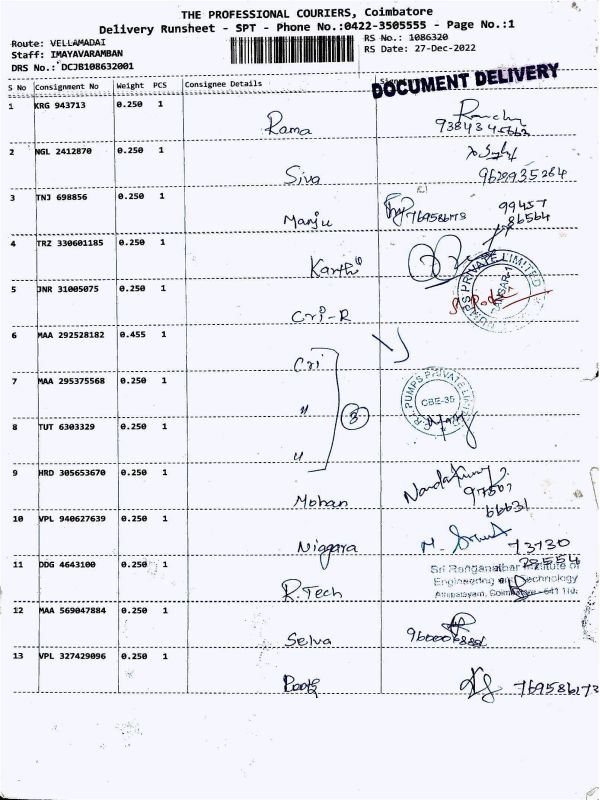 THE PROFESSIONAL COURIERS, Coimbatore
Delivery Runsheet - SPT - Phone No.:0422-3505555 - Page No.:1
Route: VELLAMADAI
Staff: IMAYAVARAMBAN
DRS No.: DCJB108632001
RS No.: 1086320
RS Date: 27-Dec-2022
DOCUMENT DELIVERY
S No Consignment No Weight PCS Consignee Details
1 KRG 943713 0.250 1 Rama
2 NGL 2412870 0.250 1 Siva
3 TNJ 698856 0.250 1 Manju 99457
86564
4 TRZ 330601185 0.250 1 Karthi
5 JNR 31005075 0.250 1 Cri-R
6 MAA 292528182 0.455 1 Cri
7 MAA 295375568 0.250 1 " 3
C.R.I. PUMPS PRIVATE LIMITED
CBE-35
8 TUT 6303329 0.250 1 "
9 HRD 305653670 0.250 1 Mohan
97507
66631
10 VPL 940627639 0.250 1 Niggara 73730
11 DDG 4643100 0.250 1 R.Tech
Sri Ranganathar Institute of
Engineering and Technology
Athipalayam, Coimbatore - 641 110.
12 MAA 569047884 0.250 1 Selva
13 VPL 327429096 0.250 1 769586173